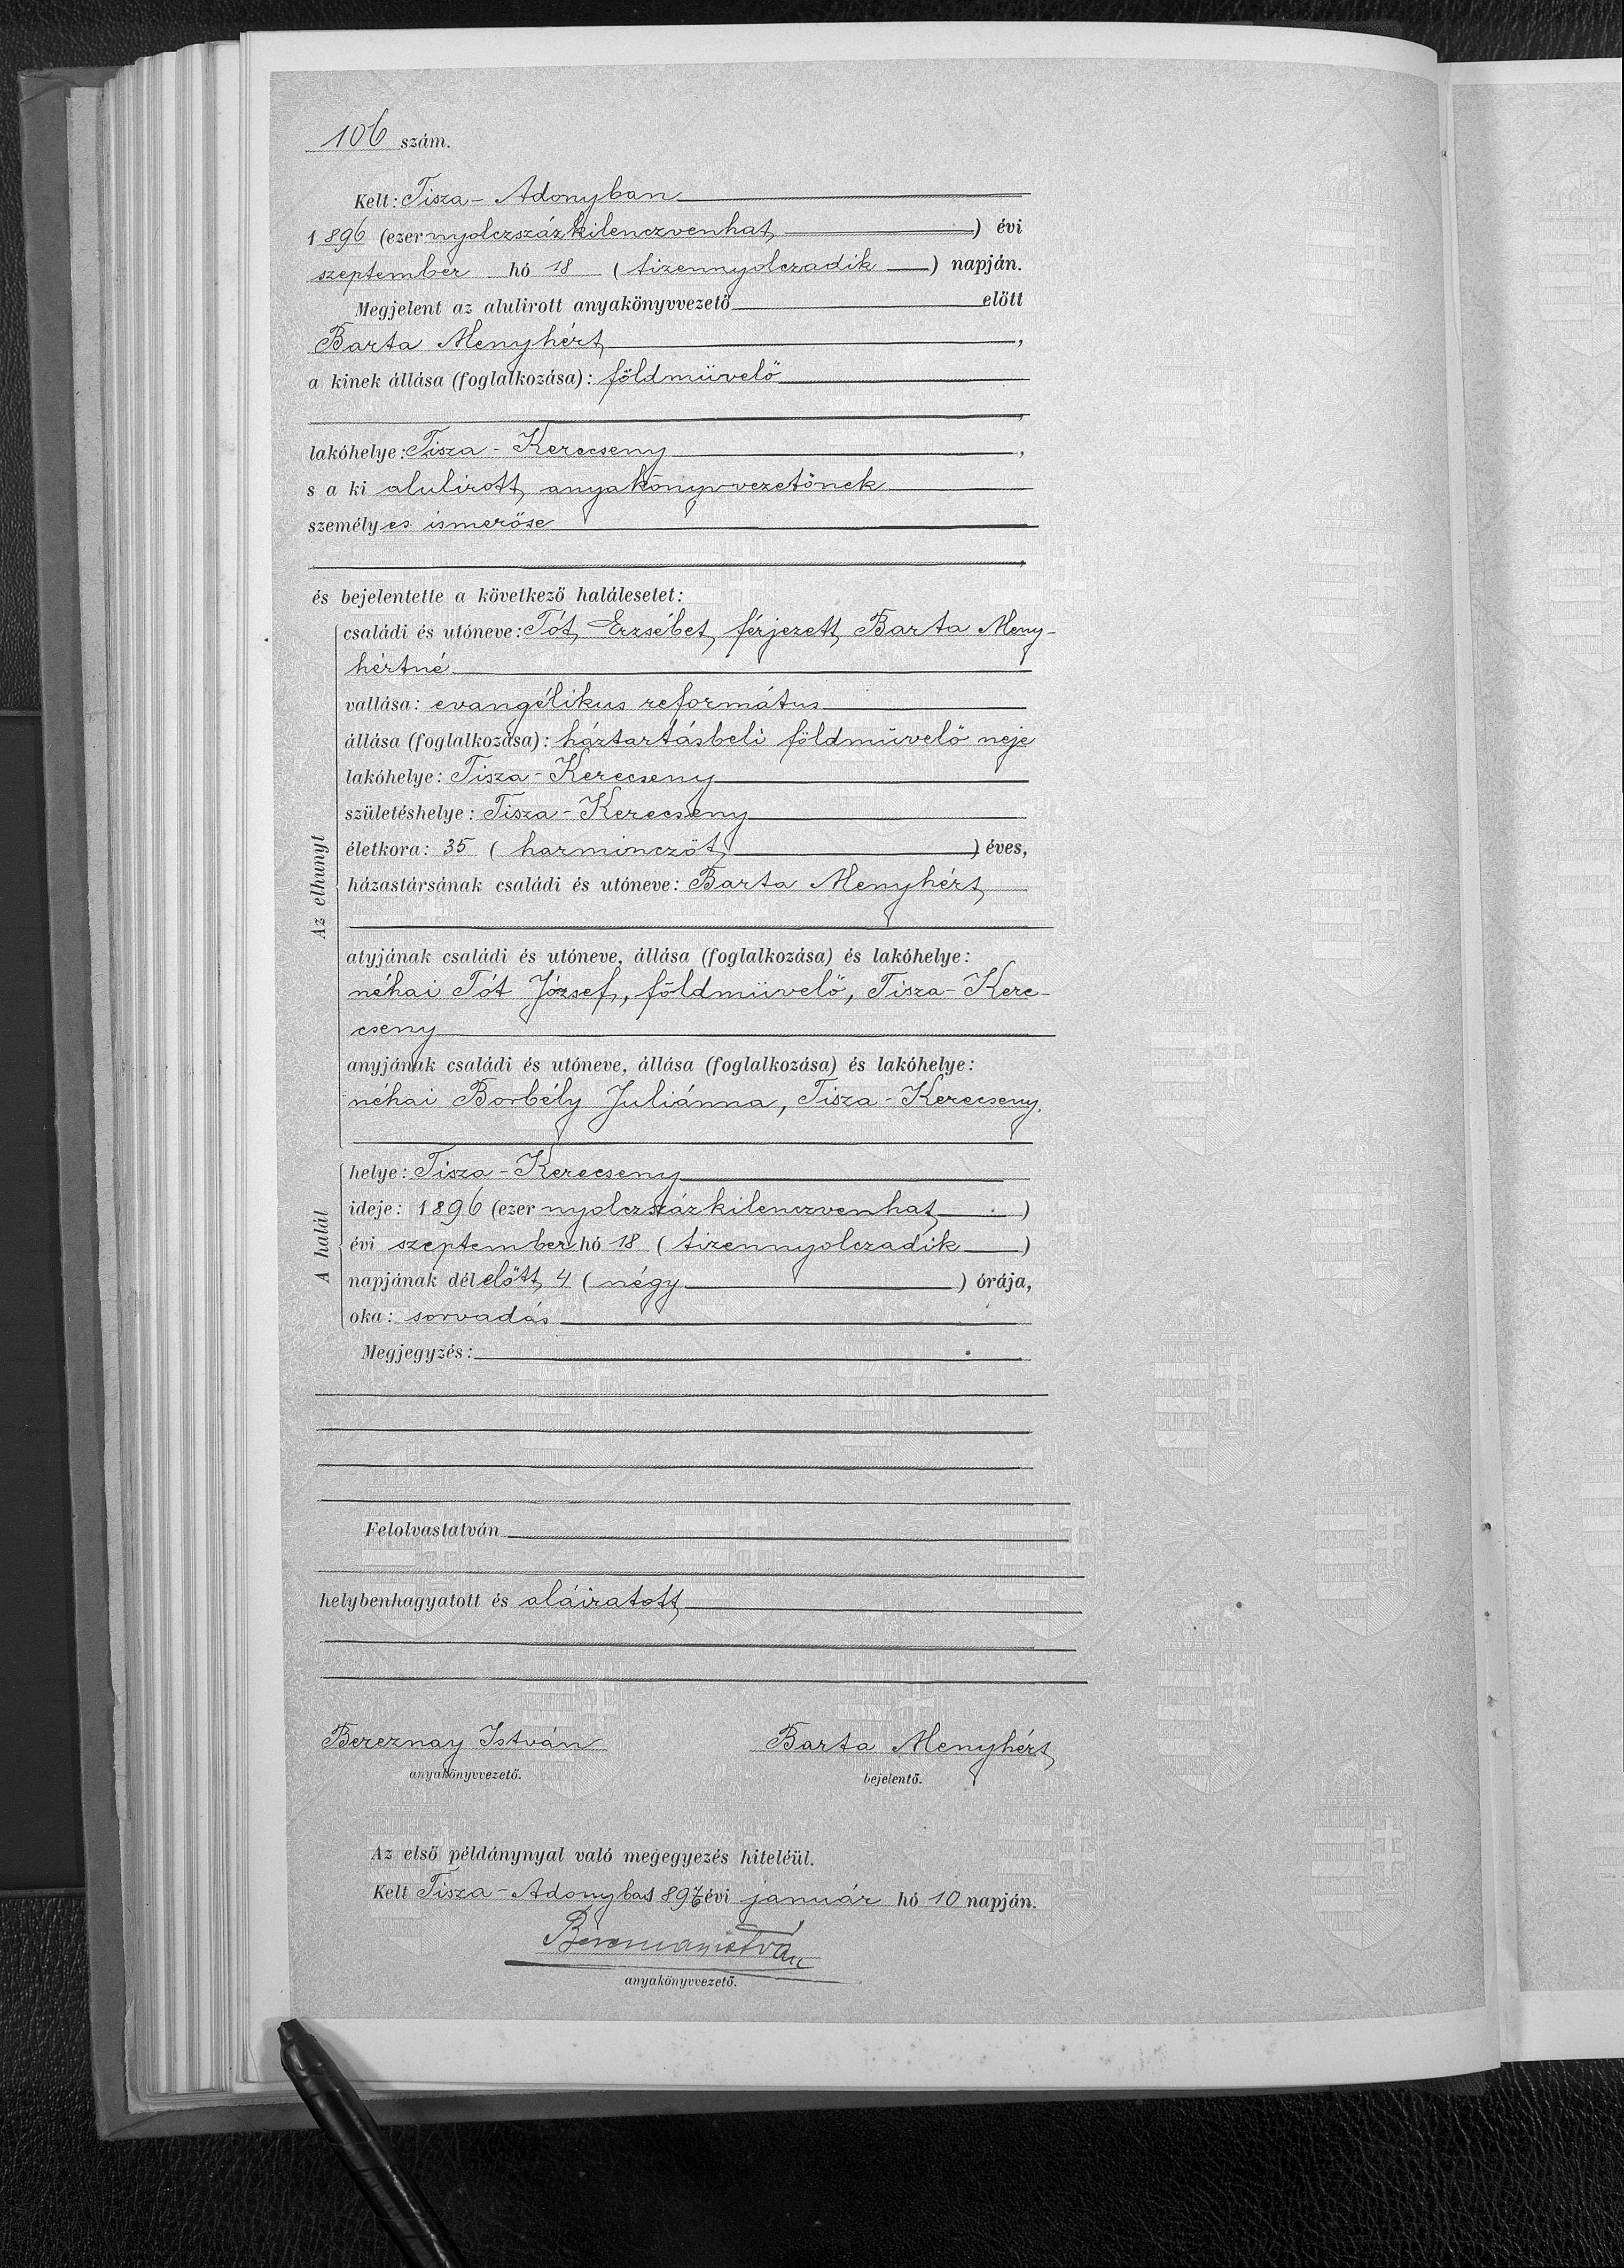 106 szám.
Kelt: Tisza-Adonyban
1896 (ezer nyolczszázkilenczvenhat) évi
szeptember hó 18 (tizennyolczadik) napján.
Megjelent az alulirott anyakönyvvezető előtt
Barta Menyhért,
a kinek állása (foglalkozása): földmüvelő
lakóhelye: Tisza-Kerecseny,
s a ki alulirott anyakönyvvezetőnek
személyes ismerőse
és bejelentette a következő halálesetet:
Az elhunyt
családi és utóneve: Tót Erzsébet, férjezett Barta Meny-
hértné
vallása: evangélikus református
állása (foglalkozása): háztartásbeli földmüvelő neje
lakóhelye: Tisza-Kerecseny
születéshelye: Tisza-Kerecseny
életkora: 35 (harminczöt) éves,
házastársának családi és utóneve: Barta Menyhért
atyjának családi és utóneve, állása (foglalkozása) és lakóhelye:
néhai Tót József, földmüvelő, Tisza-Kere-
cseny
anyjának családi és utóneve, állása (foglalkozása) és lakóhelye:
néhai Borbély Juliánna, Tisza-Kerecseny,
A halál
helye: Tisza-Kerecseny
ideje: 1896 (ezer nyolczszázkilenczvenhat)
évi szeptember hó 18 (tizennyolczadik)
napjának délelőtt 4 (négy) órája,
oka: sorvadás
Megjegyzés:
Felolvastatván
helybenhagyatott és aláiratott
Bereznay István Barta Menyhért
anyakönyvvezető. bejelentő.
Az első példánynyal való megegyezés hiteléül.
Kelt Tisza-Adonyba 1897 évi január hó 10 napján.
Bereznay István
anyakönyvvezető.